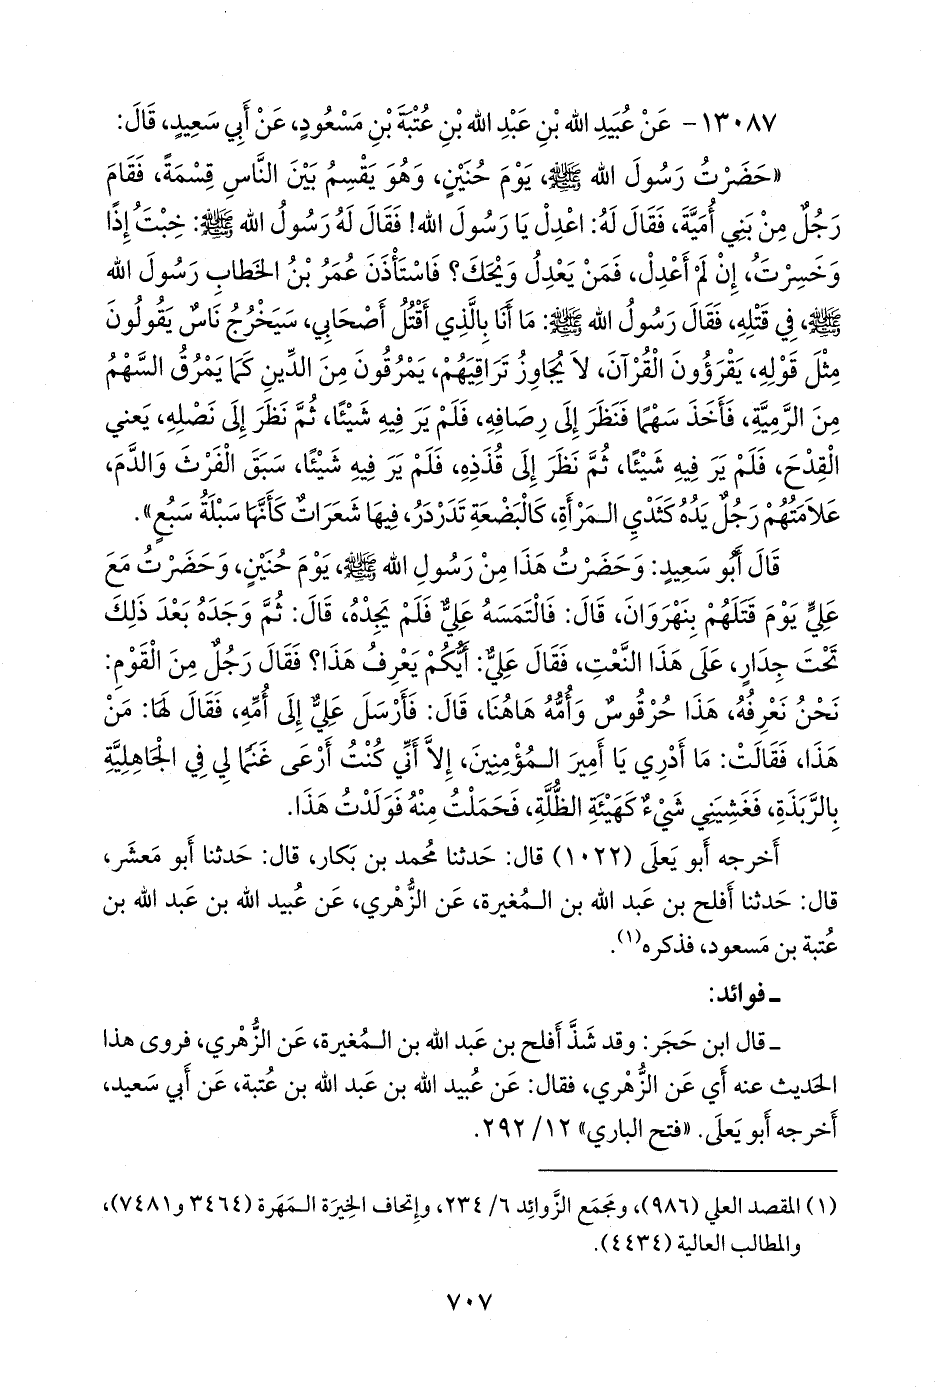 ١٣٠٨٧- عَنْ عُبَيدِ الله بْنِ عَبْدِ الله بْنِ عُتْبَةَ بْنِ مَسْعُودٍ، عَنْ أَبِي سَعِيدٍ، قَالَ:
«حَضَرْتُ رَسُولَ الله ﷺ، يَوْمَ حُنَيْنٍ، وَهُوَ يَقْسِمُ بَيْنَ النَّاسِ قِسْمَةً، فَقَامَ
رَجُلٌ مِنْ بَنِي أُمَيَّةَ، فَقَالَ لَهُ: اعْدِلْ يَا رَسُولَ الله! فَقَالَ لَهُ رَسُولُ الله ﷺ: خِبْتَُ إِذًا
وَخَسِرْتَُ، إِنْ لَمْ أَعْدِلْ، فَمَنْ يَعْدِلُ وَيْحَكَ؟ فَاسْتَأْذَنَ عُمَرُ بْنُ الخَطابِ رَسُولَ الله
ﷺ، فِي قَتْلِهِ، فَقَالَ رَسُولُ الله ﷺ: مَا أَنَا بِالَّذِي أَقْتُلُ أَصْحَابِي، سَيَخْرُجُ نَاسٌ يَقُولُونَ
مِثْلَ قَوْلِهِ، يَقْرَؤُونَ الْقُرْآنَ، لاَ يُجَاوِزُ تَرَاقِيَهُمْ، يَمْرُقُونَ مِنَ الدِّينِ كَمَا يَمْرُقُ السَّهْمُ
مِنَ الرَّمِيَّةِ، فَأَخَذَ سَهْمًا فَنَظَرَ إِلَى رِصَافِهِ، فَلَمْ يَرَ فِيهِ شَيْئًا، ثُمَّ نَظَرَ إِلَى نَصْلِهِ، يَعني
الْقِدْحَ، فَلَمْ يَرَ فِيهِ شَيْئًا، ثُمَّ نَظَرَ إِلَى قُذَذِهِ، فَلَمْ يَرَ فِيهِ شَيْئًا، سَبَقَ الْفَرْثَ وَالدَّمَ،
عَلاَمَتُهُمْ رَجُلٌ يَدُهُ كَثَدْيِ الـمَرْأَةِ، كَالْبَضْعَةِ تَدَرْدَرُ، فِيهَا شَعَرَاتٌ كَأَنَّهَا سَبْلَةُ سَبُعٍ».
قَالَ أَبُو سَعِيدٍ: وَحَضَرْتُ هَذَا مِنْ رَسُولِ الله ﷺ، يَوْمَ حُنَيْنٍ، وَحَضَرْتُ مَعَ
عَلِيٍّ يَوْمَ قَتَلَهُمْ بِنَهْرَوَانَ، قَالَ: فَالْتَمَسَهُ عَلِيٌّ فَلَمْ يَجِدْهُ، قَالَ: ثُمَّ وَجَدَهُ بَعْدَ ذَلِكَ
تَحْتَ جِدَارٍ، عَلَى هَذَا النَّعْتِ، فَقَالَ عَلِيٌّ: أَيُّكُمْ يَعْرِفُ هَذَا؟ فَقَالَ رَجُلٌ مِنَ الْقَوْمِ:
نَحْنُ نَعْرِفُهُ، هَذَا حُرْقُوسٌ وَأُمُّهُ هَاهُنَا، قَالَ: فَأَرْسَلَ عَلِيٌّ إِلَى أُمِّهِ، فَقَالَ لَهَا: مَنْ
هَذَا، فَقَالَتْ: مَا أَدْرِي يَا أَمِيرَ الـمُؤْمِنِينَ، إِلاَّ أَنِّي كُنْتُ أَرْعَى غَنَمًا لِي فِي الْجَاهِلِيَّةِ
بِالرَّبَذَةِ، فَغَشِيَنِي شَيْءٌ كَهَيْئَةِ الظُّلَّةِ، فَحَمَلْتُ مِنْهُ فَوَلَدْتُ هَذَا.
أَخرجه أَبو يَعلَى (١٠٢٢) قال: حَدثنا مُحمد بن بَكار، قال: حَدثنا أَبو مَعشَر،
قال: حَدثنا أَفلح بن عَبد الله بن الـمُغيرة، عَن الزُّهْري، عَن عُبيد الله بن عَبد الله بن
عُتبة بن مَسعود، فذكره(١).
ـ فوائد:
ـ قال ابن حَجَر: وقد شَذَّ أَفلح بن عَبد الله بن الـمُغيرة، عَن الزُّهْري، فروى هذا
الحَديث عنه أَي عَن الزُّهْري، فقال: عَن عُبيد الله بن عَبد الله بن عُتبة، عَن أَبي سَعيد،
أَخرجه أَبو يَعلَى. «فتح الباري» ١٢/ ٢٩٢.
(١) المَقصد العلي (٩٨٦)، ومَجمَع الزَّوائِد ٦/ ٢٣٤، وإِتحاف الخِيرَة الـمَهَرة (٣٤٦٤ و٧٤٨١)،
والمطالب العالية (٤٤٣٤).
٧٠٧